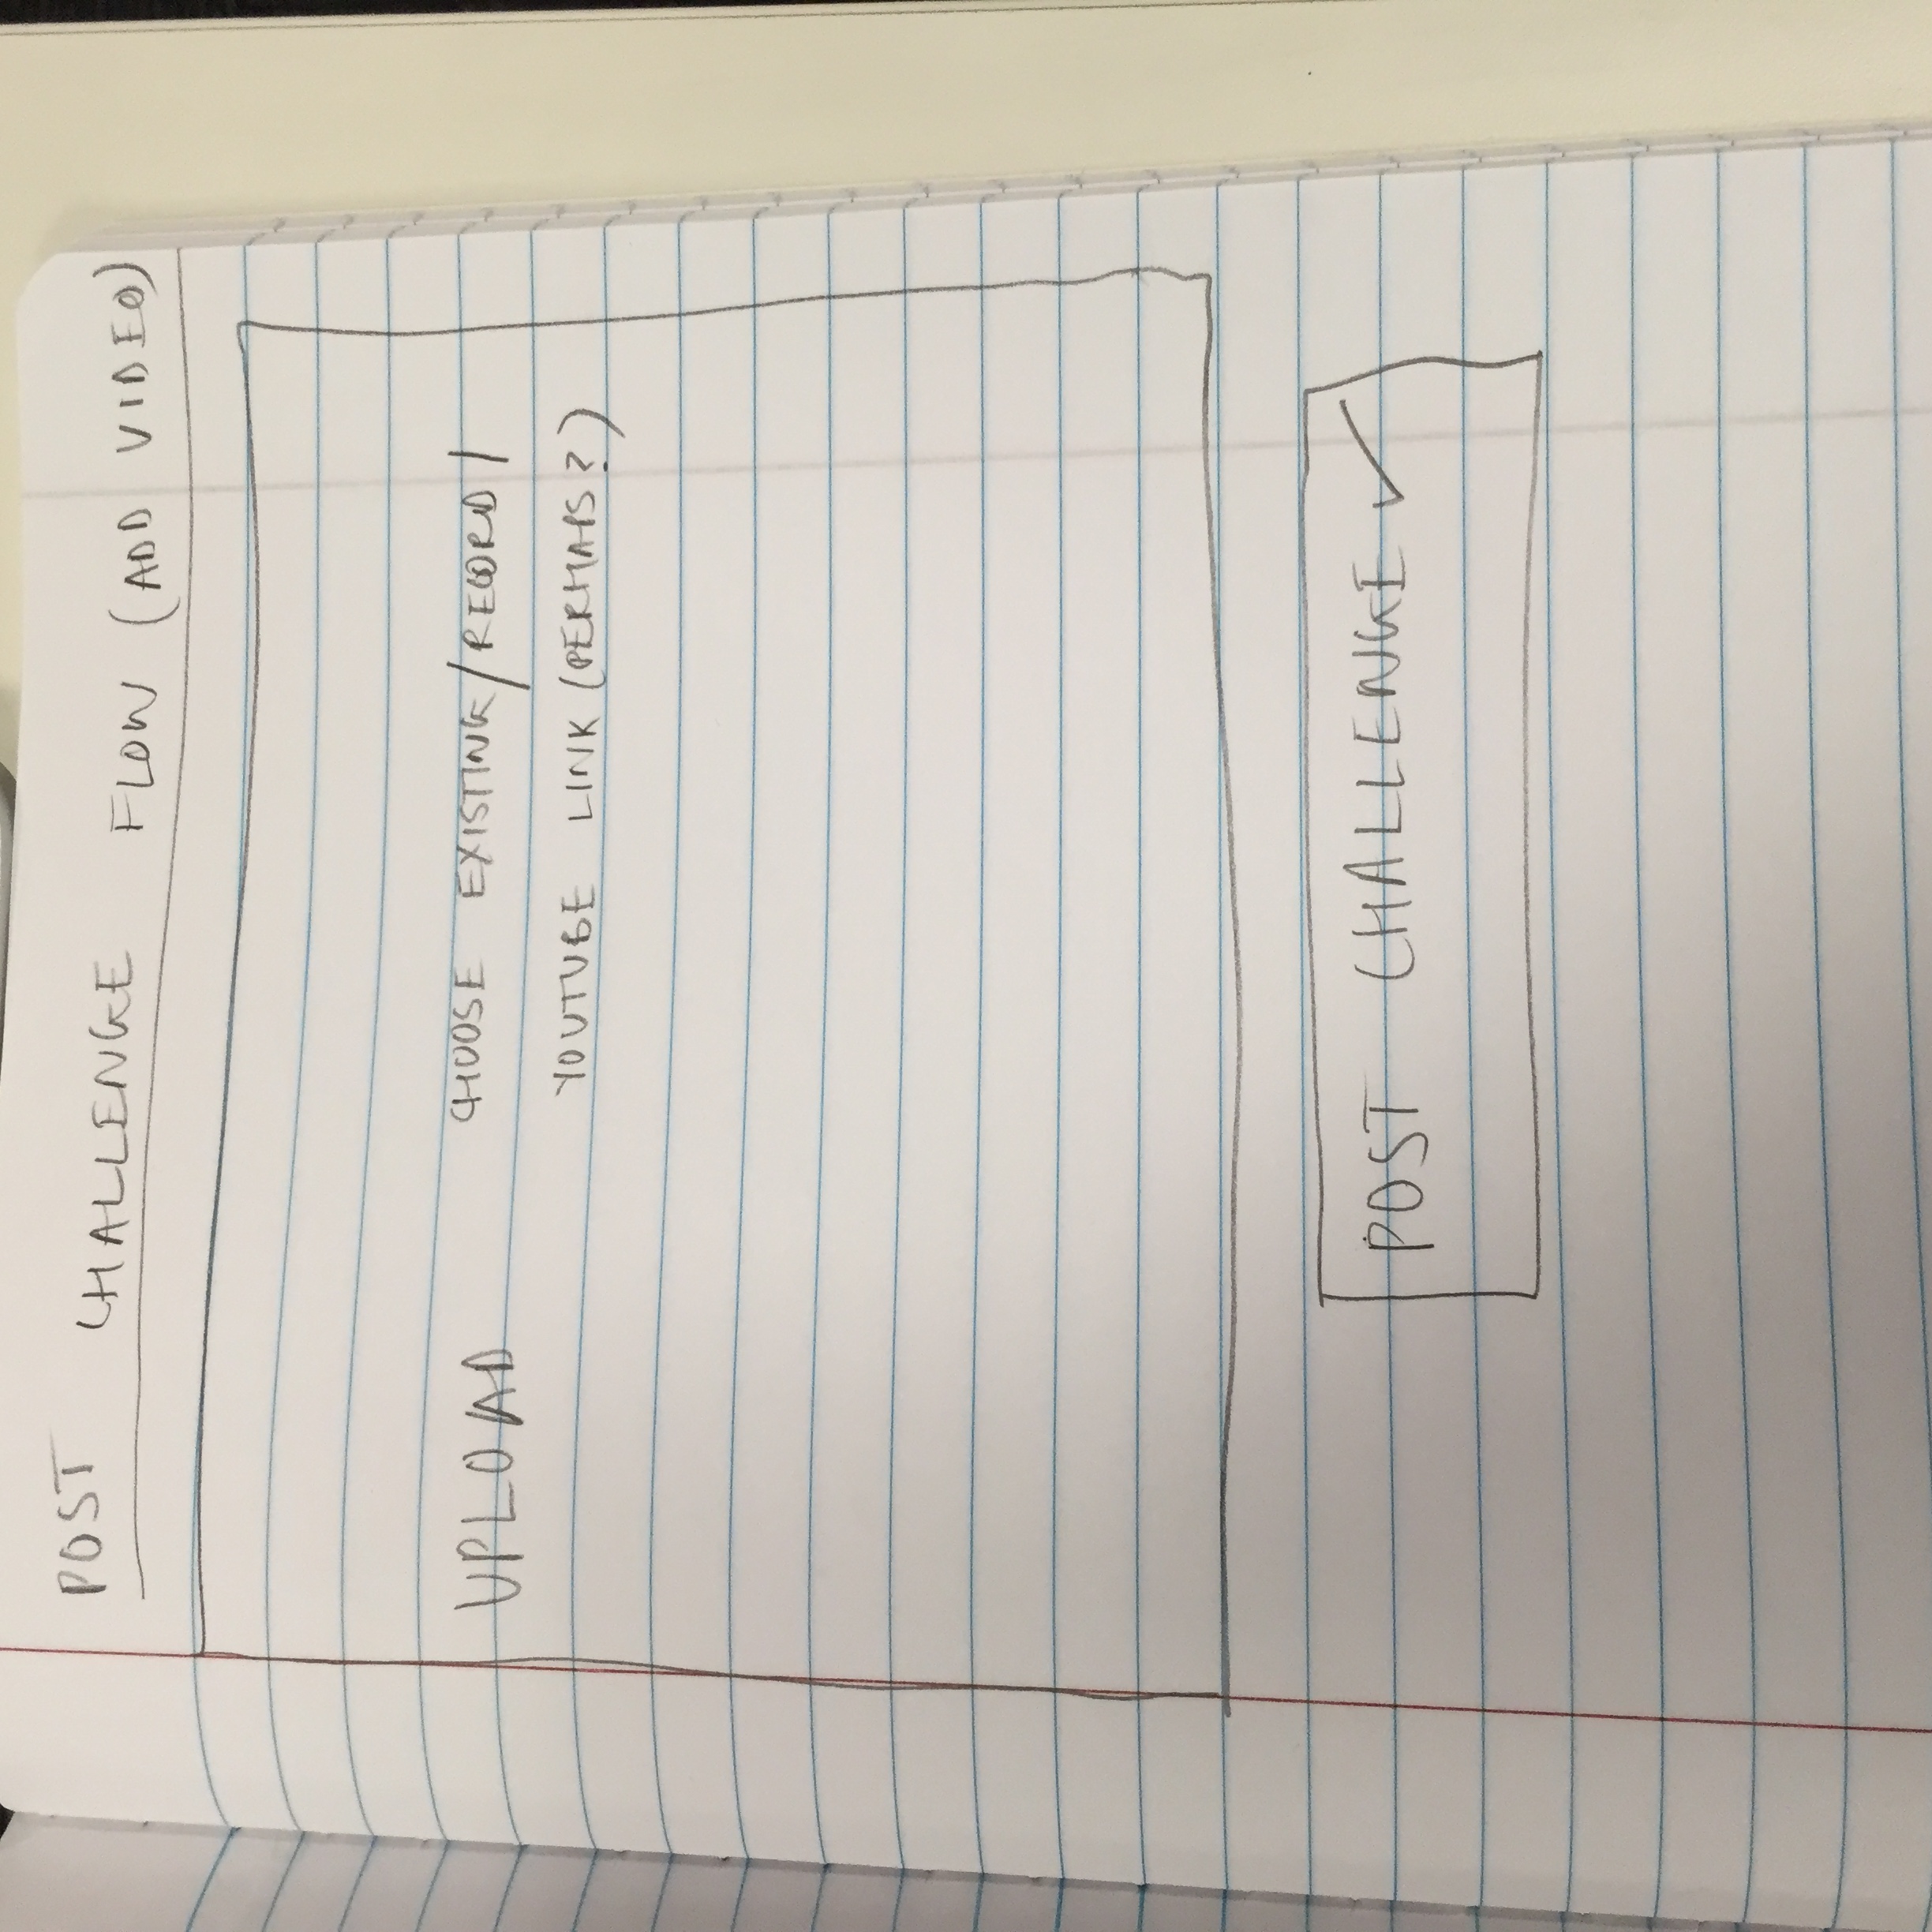 POST CHALLENGE FLOW (ADD VIDEO)
UPLOAD CHOOSE EXISTING/RECORD/
YOUTUBE LINK (PERHAPS?)
POST CHALLENGE ✓